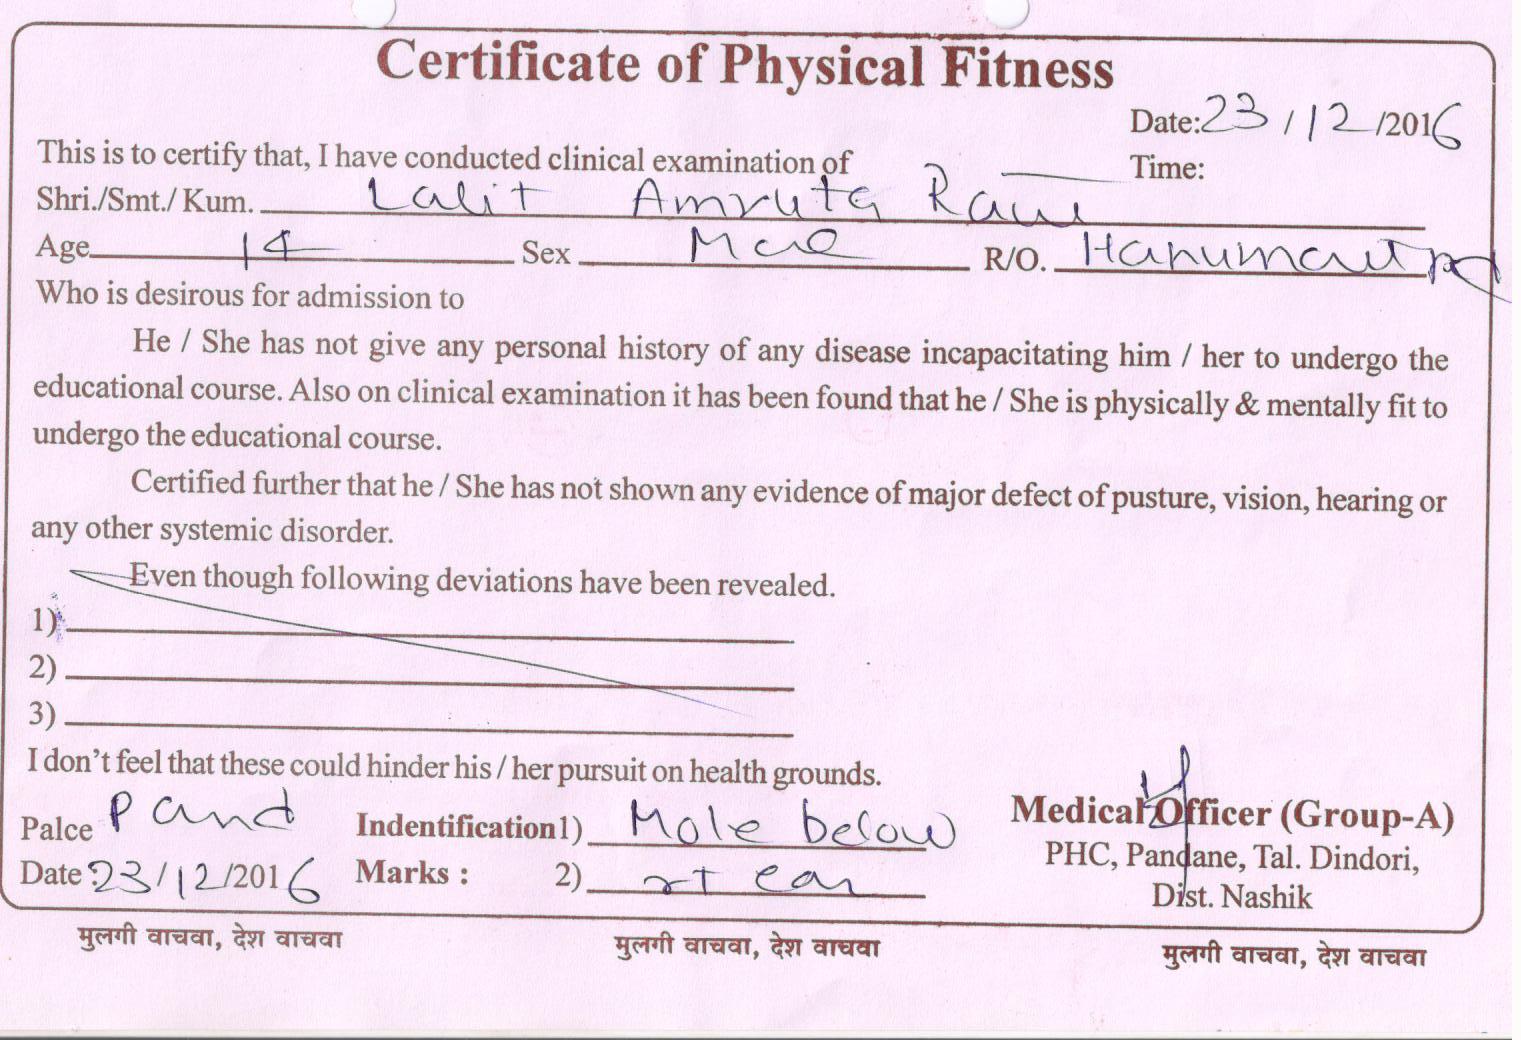 Certificate of Physical Fitness
Date: 23/12/2016
This is to certify that, I have conducted clinical examination of
Time:
Shri./Smt./ Kum. Lalit Amruta
Age 14 Sex Male R/O.
Who is desirous for admission to
He / She has not give any personal history of any disease incapacitating him / her to undergo the
educational course. Also on clinical examination it has been found that he / She is physically & mentally fit to
undergo the educational course.
Certified further that he / She has not shown any evidence of major defect of pusture, vision, hearing or
any other systemic disorder.
Even though following deviations have been revealed.
1)
2)
3)
I don't feel that these could hinder his / her pursuit on health grounds.
Palce Pand Indentification 1) Mole below
Date 23/12/2016 Marks : 2) rt ear
Medical Officer (Group-A)
PHC, Pandane, Tal. Dindori,
Dist. Nashik
मुलगी वाचवा, देश वाचवा मुलगी वाचवा, देश वाचवा मुलगी वाचवा, देश वाचवा